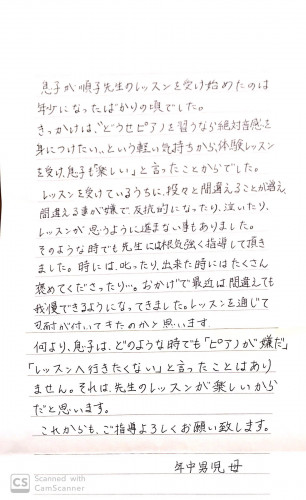 息子が順子先生のレッスンを受け始めたのは
年少になったばかりの頃でした。
きっかけは、"どうせピアノを習うなら絶対音感を
身につけたい…という軽い気持ちから、体験レッスン
を受け、息子も「楽しい」と言ったことからでした。
レッスンを受けているうちに、段々と間違えることが増え、
間違える事が嫌で反抗的になったり、泣いたり、
レッスンが思うように進まない事もありました。
そのような時でも先生には根気強く指導して頂き
ました。時には、叱ったり、出来た時にはたくさん
褒めてくださったり…。おかげで最近は間違えても
我慢できるようになってきました。レッスンを通じて
忍耐が付いてきたのかと思います。
何より、息子は、どのような時でも「ピアノが嫌だ」
「レッスンへ行きたくない」と言ったことはあり
ません。それは、先生のレッスンが楽しいから
だと思います。
これからも、ご指導よろしくお願い致します。
年中男児 母
CS
Scanned with
CamScanner